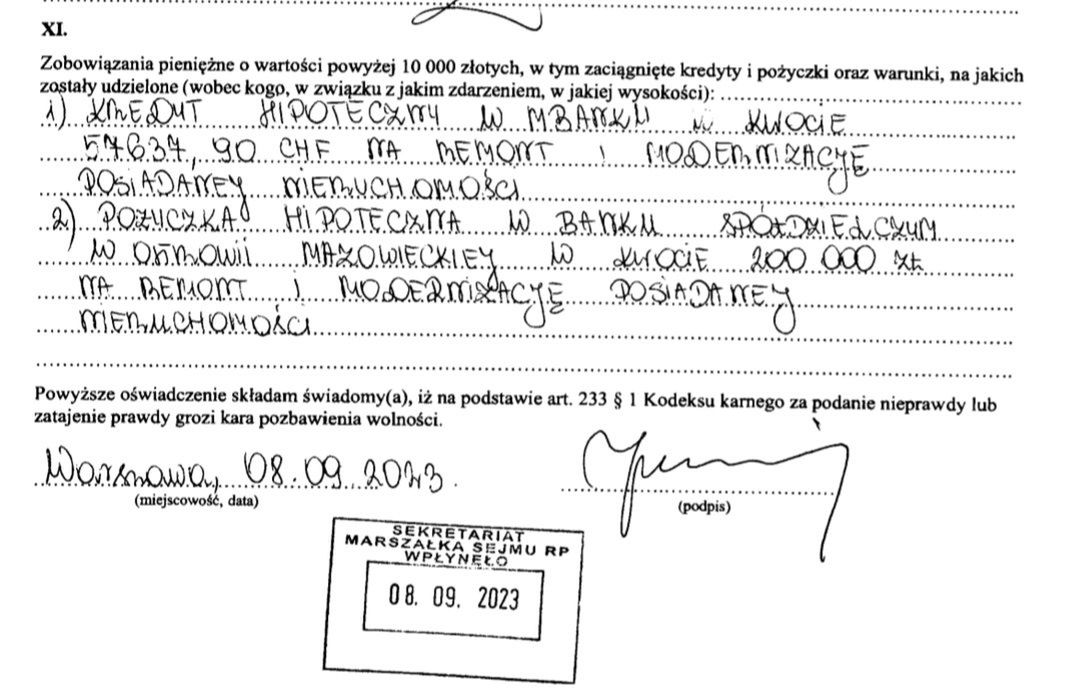 XI.
Zobowiązania pieniężne o wartości powyżej 10 000 złotych, w tym zaciągnięte kredyty i pożyczki oraz warunki, na jakich
zostały udzielone (wobec kogo, w związku z jakim zdarzeniem, w jakiej wysokości):
1) KREDYT HIPOTECZNY W MBANKU W KWOCIE
57637,90 CHF NA REMONT I MODERNIZACJĘ
POSIADANEJ NIERUCHOMOŚCI
2) POŻYCZKA HIPOTECZNA W BANKU SPÓŁDZIELCZYM
W OSTROWII MAZOWIECKIEJ W KWOCIE 200 000 ZŁ
NA REMONT I MODERNIZACJĘ POSIADANEJ
NIERUCHOMOŚCI
Powyższe oświadczenie składam świadomy(a), iż na podstawie art. 233 § 1 Kodeksu karnego za podanie nieprawdy lub
zatajenie prawdy grozi kara pozbawienia wolności.
Warszawa, 08.09.2023.
(miejscowość, data)
(podpis)
SEKRETARIAT
MARSZAŁKA SEJMU RP
WPŁYNĘŁO
08. 09. 2023